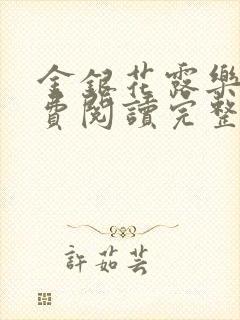 金銀花露樂
費閱讀完整
許茹芸